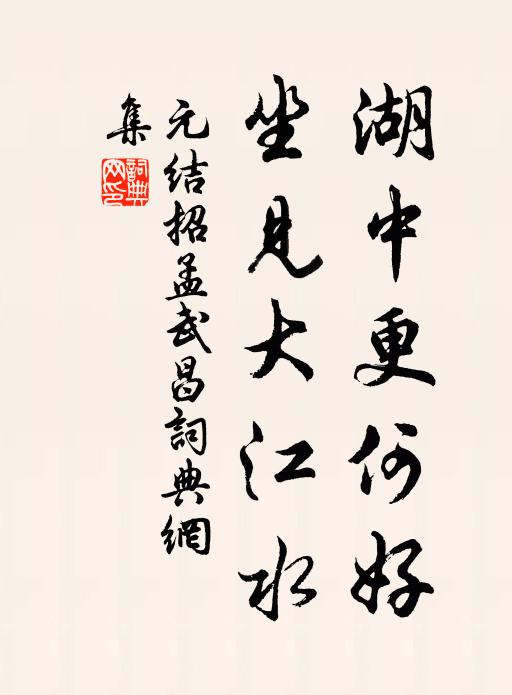 湖中更何好
坐見大江水
元结招孟武昌詞典網
集
詞典
网印